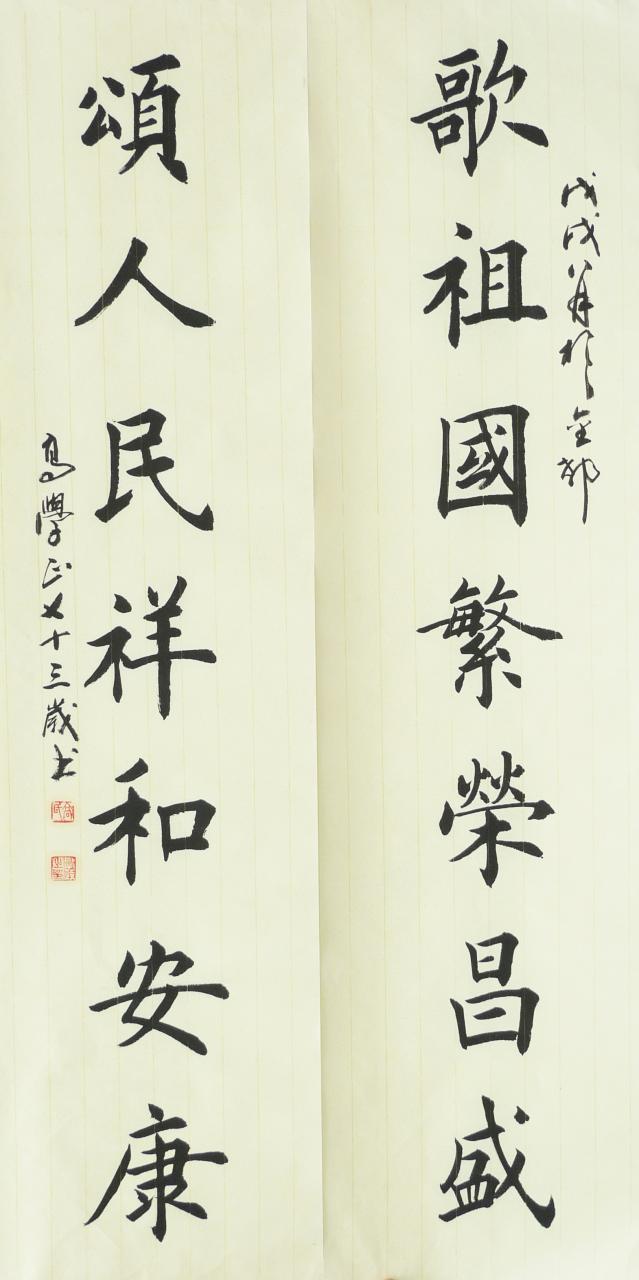 戊戌八月於金都
歌祖國繁榮昌盛
頌人民祥和安康
高學正七十三歲書